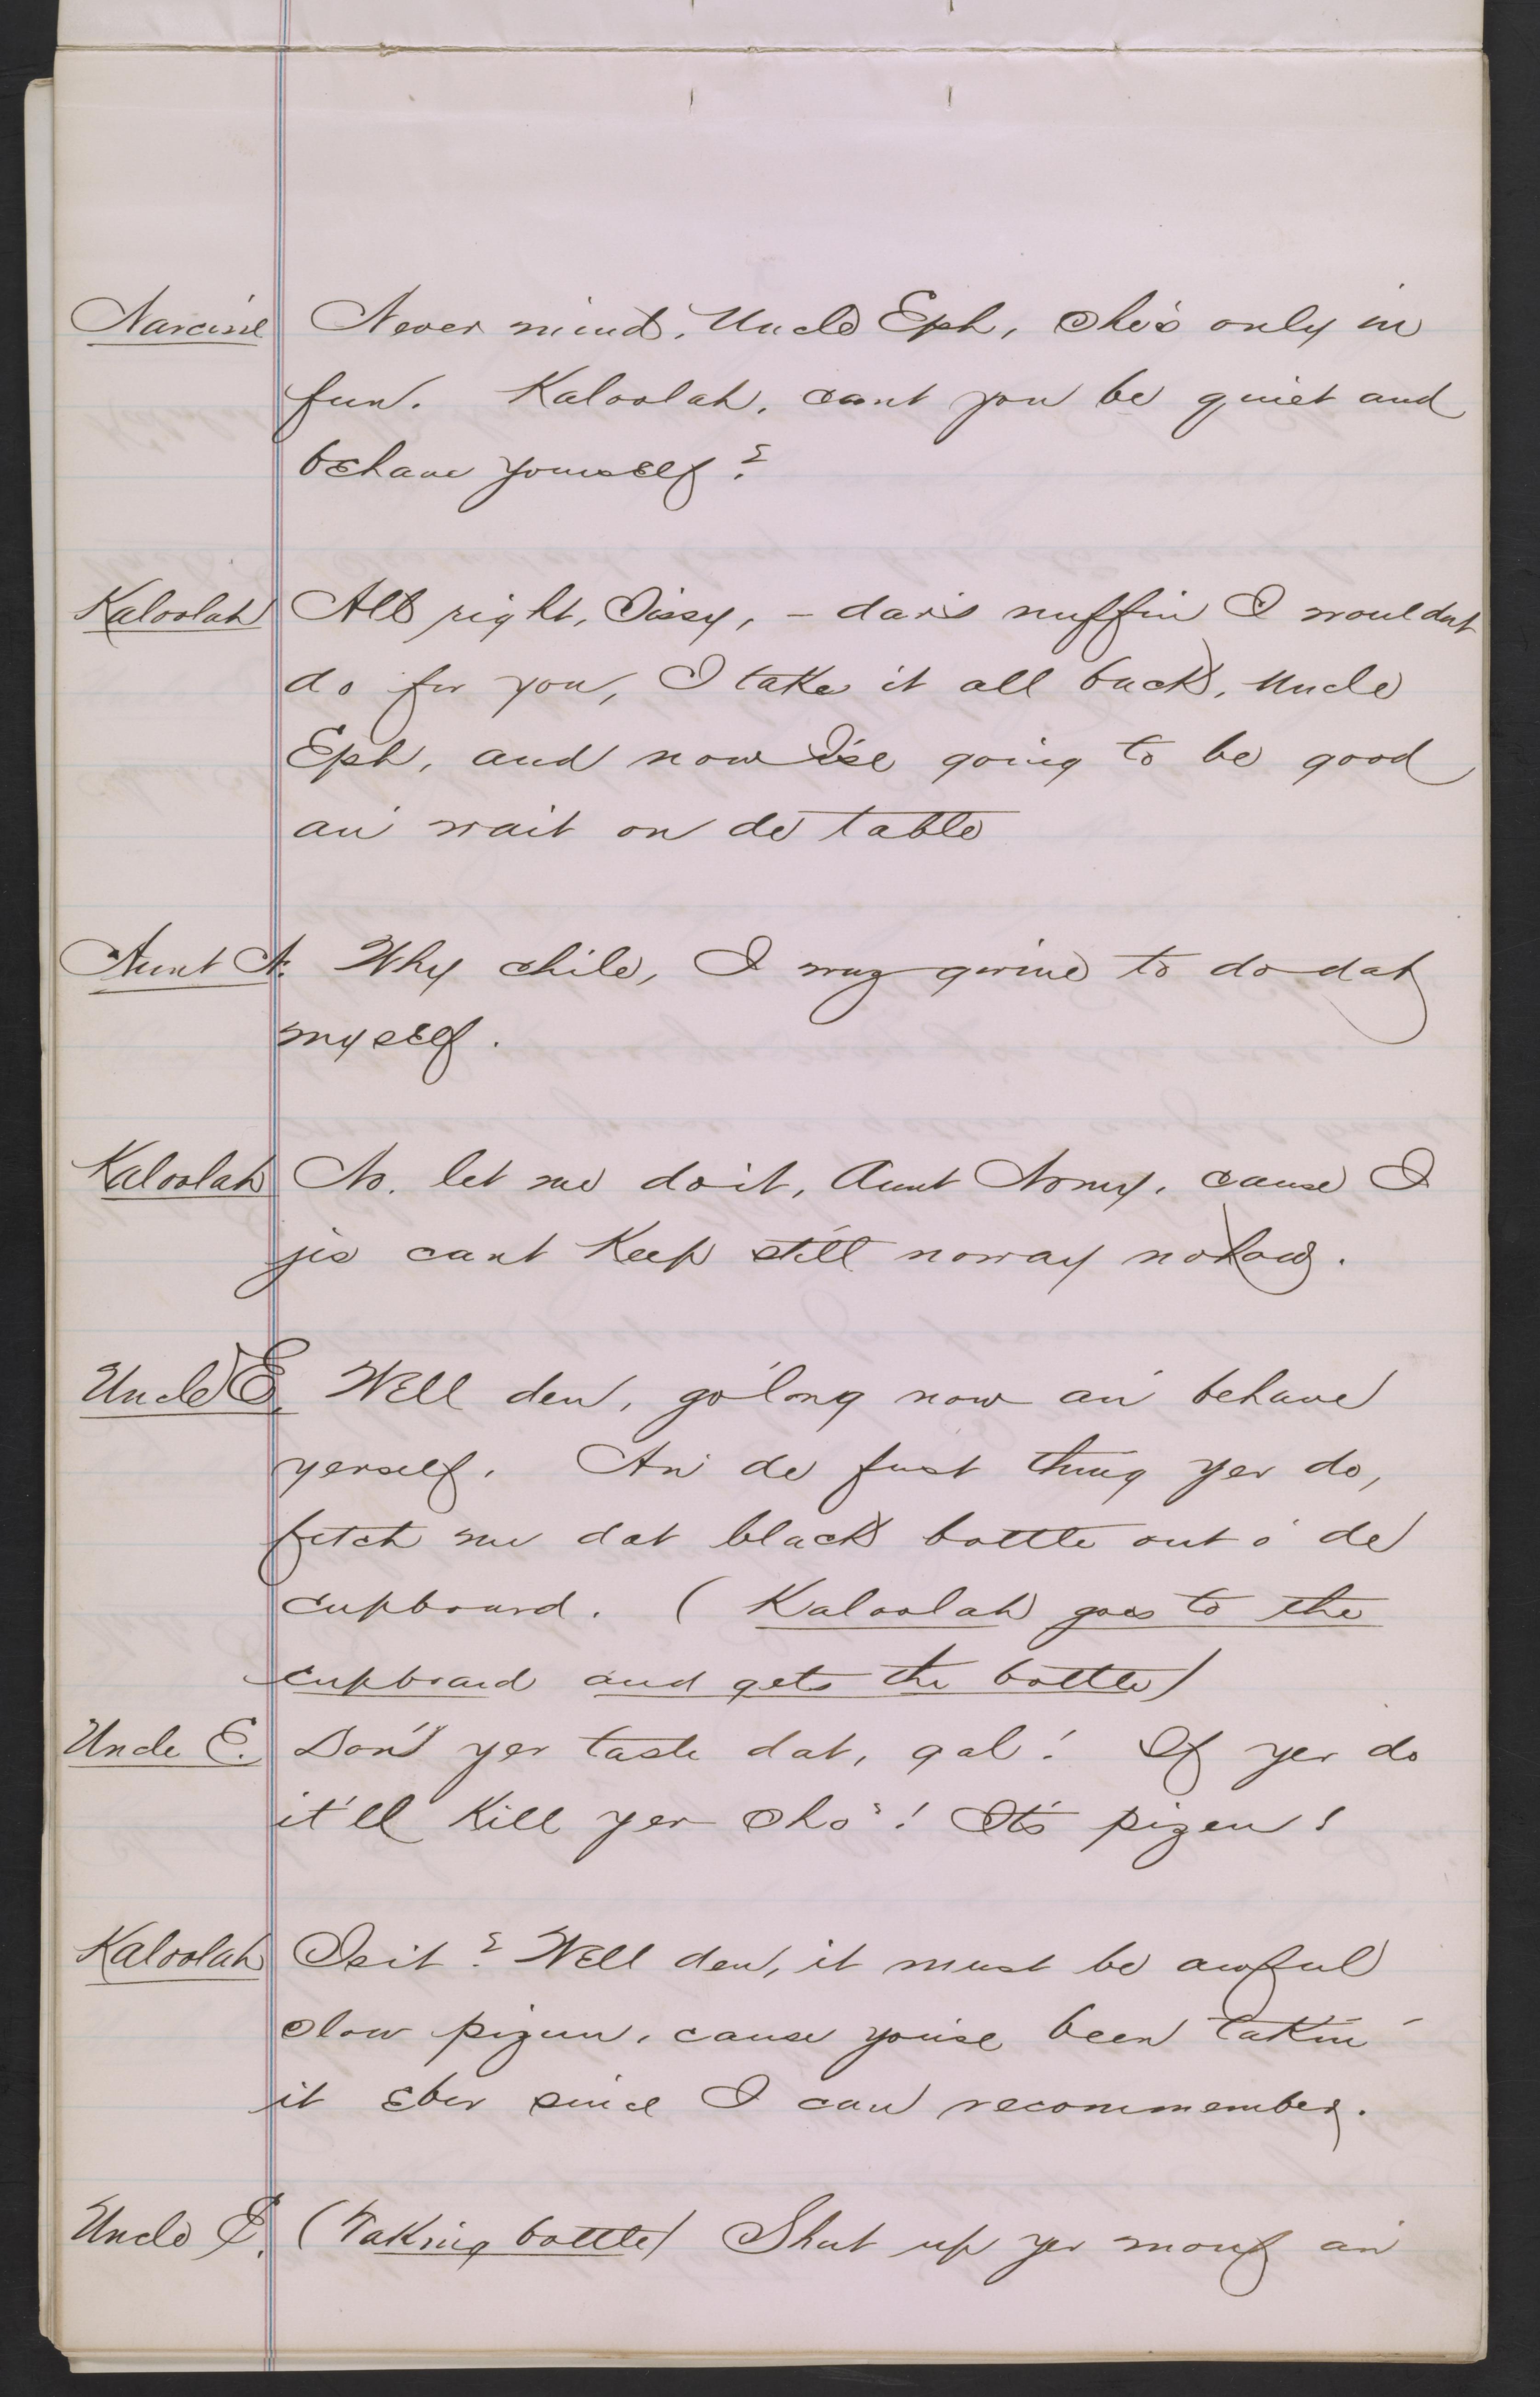 Narcisse Never mind, Uncle Eph, she's only in
fun. Kaloolah, cant you be quiet and
behave yourself?
Kaloolah All right, Sissy, - dar's nuffin I wouldnt
do for you, I take it all back, Uncle
Eph, and now I'se going to be good
an' wait on de table
Aunt N. Why chile, I wuz gwine to do dat
myself.
Kaloolah No. let me do it, Aunt Nomy, cause I
jis cant keep still noway nohow.
Uncle E. Well den, go 'long now an' behave
yerself. An' de fust thing yer do,
fetch me dat black bottle out o' de
cupboard. (Kaloolah goes to the
cupboard and gets the bottle)
Uncle E. Don't yer taste dat, gal! If yer do
it'll kill yer sho'! It's pizen!
Kaloolah Is it? Well den, it must be awful
slow pizun, cause you'se been takin'
it eber since I can recommember.
Uncle E. (Taking bottle) Shut up yer mouf an'